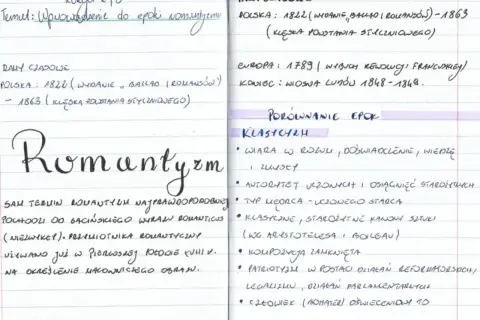 Temat: Wprowadzenie do epoki romantyzmu
RAMY CZASOWE
POLSKA: 1822 (WYDANIE „BALLAD I ROMANSÓW")
– 1863 (KLĘSKA POWSTANIA STYCZNIOWEGO)
Romantyzm
SAM TERMIN ROMANTYZM NAJPRAWDOPODOBNIEJ
POCHODZI OD ŁACIŃSKIEGO WYRAZU ROMANTICUS
(NIEZWYKŁY). PRZYMIOTNIKA ROMANTYCZNY
UŻYWANO JUŻ W PIERWSZEJ POŁOWIE XVIII W.
NA OKREŚLENIE MALOWNICZEGO OBRAZU.
POLSKA: 1822 (WYDANIE „BALLAD I ROMANSÓW") – 1863
(KLĘSKA POWSTANIA STYCZNIOWEGO)
EUROPA: 1789 (WYBUCH REWOLUCJI FRANCUSKIEJ)
KONIEC: WIOSNA LUDÓW 1848 – 1849.
PORÓWNANIE EPOK
KLASYCYZM
• WIARA W ROZUM, DOŚWIADCZENIE, WIEDZĘ
I ZMYSŁY
• AUTORYTET UCZONYCH I OSIĄGNIĘĆ STAROŻYTNYCH
• TYP MĘDRCA – UCZONEGO STARCA
• KLASYCZNE, STAROŻYTNE KANONY SZTUKI
(WG ARYSTOTELESA I BOILEAU)
• KOMPOZYCJA ZAMKNIĘTA
• PATRIOTYZM W POSTACI DZIAŁAŃ REFORMATORSKICH,
LEGALIZM, DZIAŁAŃ PARLAMENTARNYCH
• CZŁOWIEK (BOHATER) OŚWIECENIOWY TO